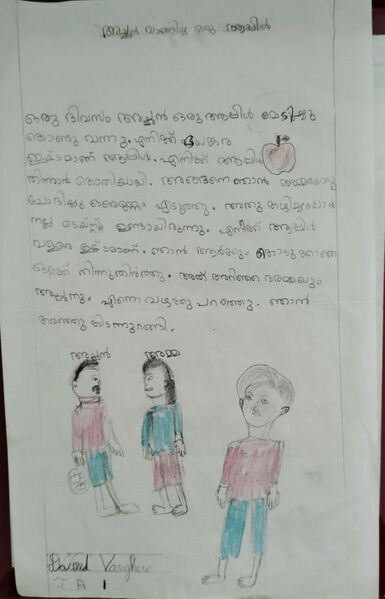 അച്ഛൻ വാങ്ങിയ ഒരു ആപ്പിൾ
ഒരു ദിവസം അച്ഛൻ ഒരു ആപ്പിൾ മേടിച്ചു
കൊണ്ടു വന്നു. എനിക്ക് ഭയങ്കര
ഇഷ്ടമാണ് ആപ്പിൾ. എനിക്ക് ആപ്പിൾ
തിന്നാൻ കൊതിയായി. അങ്ങനെ ഞാൻ അമ്മയോടു
ചോദിച്ചു ഒരെണ്ണം എടുത്തു. അതു കഴിച്ചപ്പോൾ
നല്ല ടെയ്സ്റ്റ് ഉണ്ടായിരുന്നു. എനിക്ക് ആപ്പിൾ
വളരെ ഇഷ്ടമാണ്. ഞാൻ ആർക്കും കൊടുക്കാതെ
ഒറ്റക്ക് തിന്നുതീർത്തു. അത് അറിഞ്ഞ അമ്മയും
അച്ഛനും എന്നെ വഴക്കു പറഞ്ഞു. ഞാൻ
കരഞ്ഞു കിടന്നുറങ്ങി.
അച്ഛൻ അമ്മ
David Varghese
I A 1